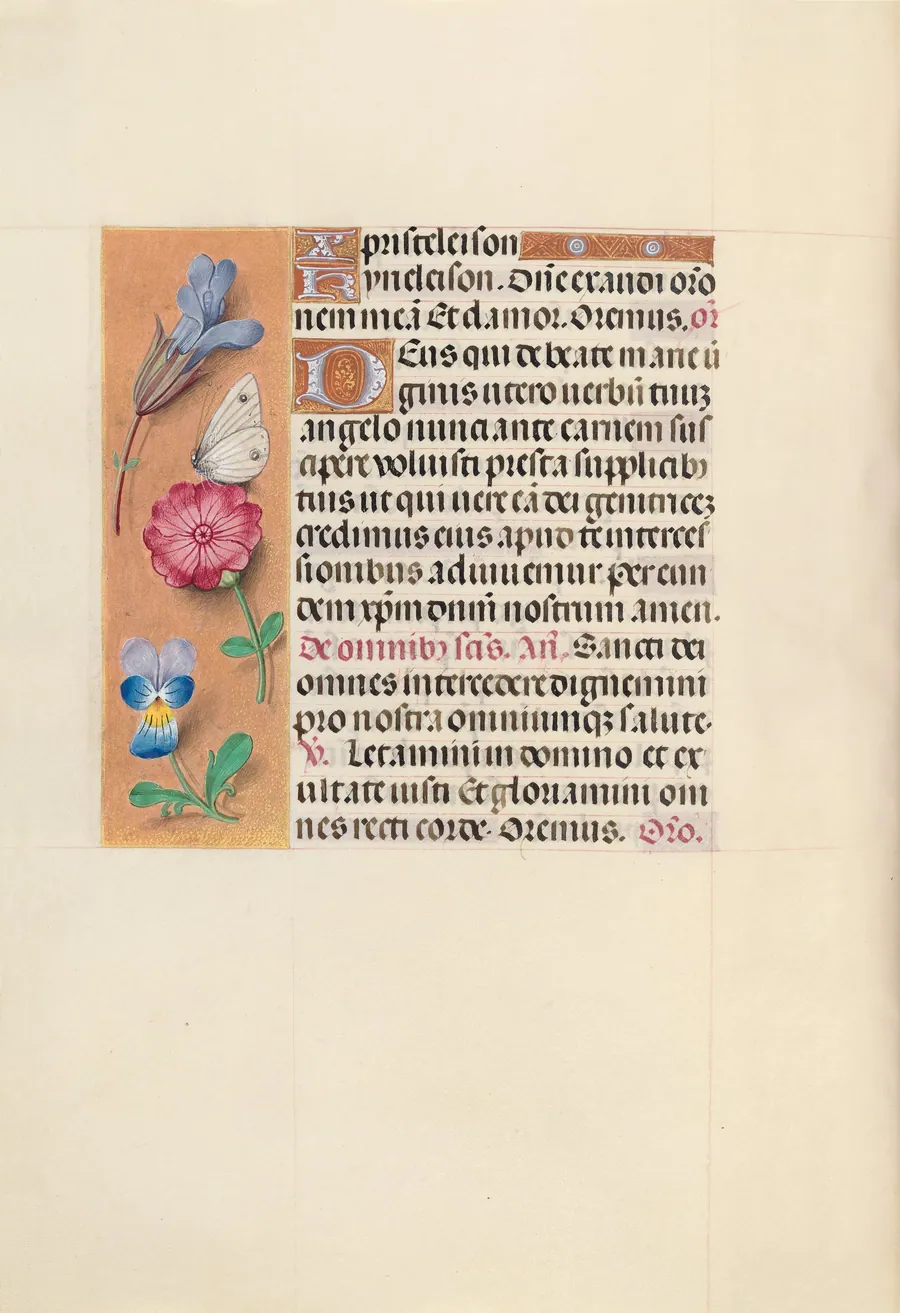 Xpristeleison
Kyrieleison. Dñe exaudi orõ
nem meã Et clamor. Oremus. or̃
Deus qui de beate marie ui
ginis utero uerbũ tuuꝫ
angelo nunciante carnem sus
cipere voluisti presta supplicibꝰ
tuis ut qui uere eã dei genitriceꝫ
credimus eius apud te interces
sionibus adiuuemur per eun
dem xp̃m dñm nostrum amen.
De omnibꝰ scĩs. Añ. Sancti dei
omnes intercedere dignemini
pro nostra omniumqꝫ salute.
V̷. Letamini in domino et ex
ultate iusti Et gloriamini om
nes recti corde. Oremus. Orõ.